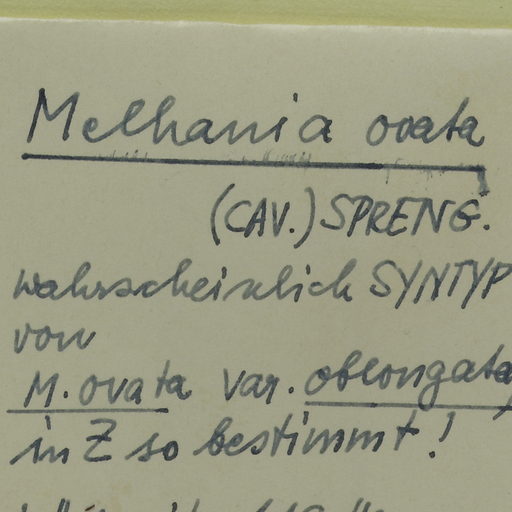 Melhania ovata
(CAV.) SPRENG.
wahrscheinlich SYNTYP
von
M. ovata var. oblongata
in Z so bestimmt!